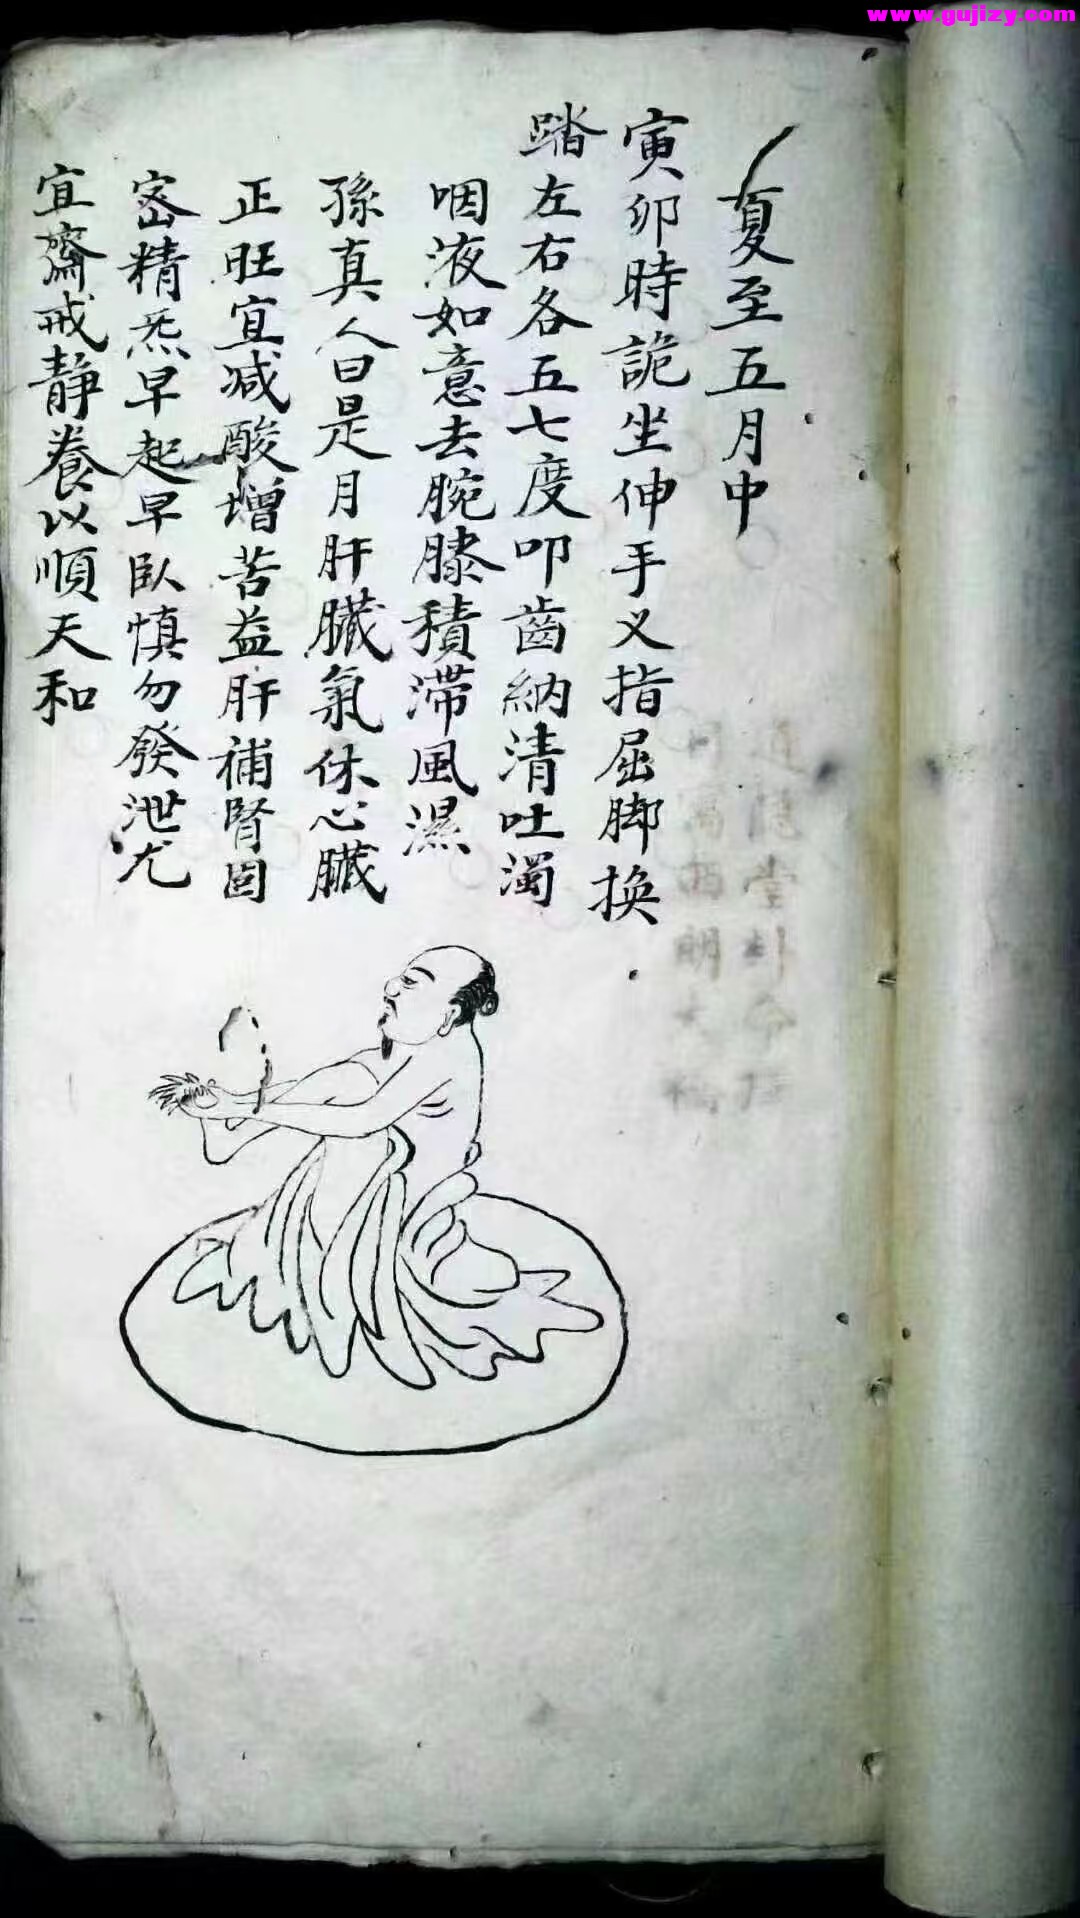 www.gujizy.com
夏至五月中
寅卯時詭坐伸手义指屈脚換
踏左右各五七度叩齒納清吐濁
咽液如意去腕膝積滯風濕
孫真人曰是月肝臓氣休心臓
正旺宜减酸增苦益肝補腎固
密精炁早起早臥慎勿發泄尤
宜齋戒靜養以順天和